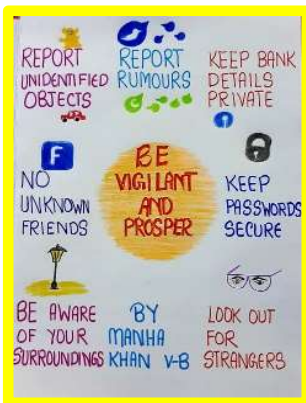 REPORT
UNIDENTIFIED
OBJECTS
REPORT
RUMOURS
KEEP BANK
DETAILS
PRIVATE
f
NO
UNKNOWN
FRIENDS
BE
VIGILANT
AND
PROSPER
KEEP
PASSWORDS
SECURE
BE AWARE
OF YOUR
SURROUNDINGS
BY
MANHA
KHAN V-B
LOOK OUT
FOR
STRANGERS